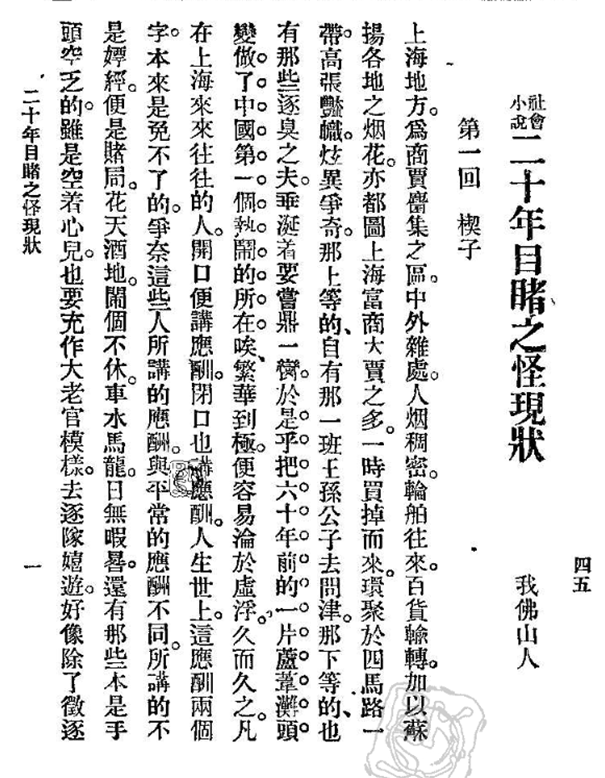 四五
社會小說
二十年目睹之怪現狀
我佛山人
第一回 楔子
上海地方。爲商賈麕集之區。中外雜處。人烟稠密。輪舶往來。百貨輸轉。加以蘇
揚各地之烟花。亦都圖上海富商大賈之多。一時買掉而來。環聚於四馬路一
帶。高張豔幟。炫異爭奇。那上等的、自有那一班王孫公子去問津。那下等的、也
有那些逐臭之夫。垂涎着要嘗鼎一臠。於是乎把六十年前的一片蘆葦灘頭
變做了中國第一個熱鬧的所在。唉、繁華到極。便容易淪於虛浮。久而久之。凡
在上海來來往往的人。開口便講應酬。閉口也講應酬。人生世上。這應酬兩個
字。本來是免不了的。爭奈這些人所講的應酬。與平常的應酬不同。所講的不
是嫖經。便是賭局。花天酒地。鬧個不休。車水馬龍。日無暇晷。還有那些本是手
頭空乏的。雖是空着心兒。也要充作大老官模樣。去逐隊嬉遊。好像除了徵逐
二十年目睹之怪現狀
一